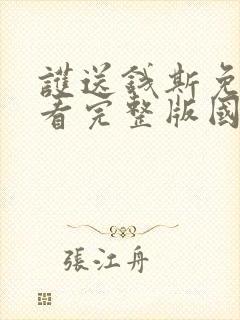 護送錢斯免
看完整版國
張江舟